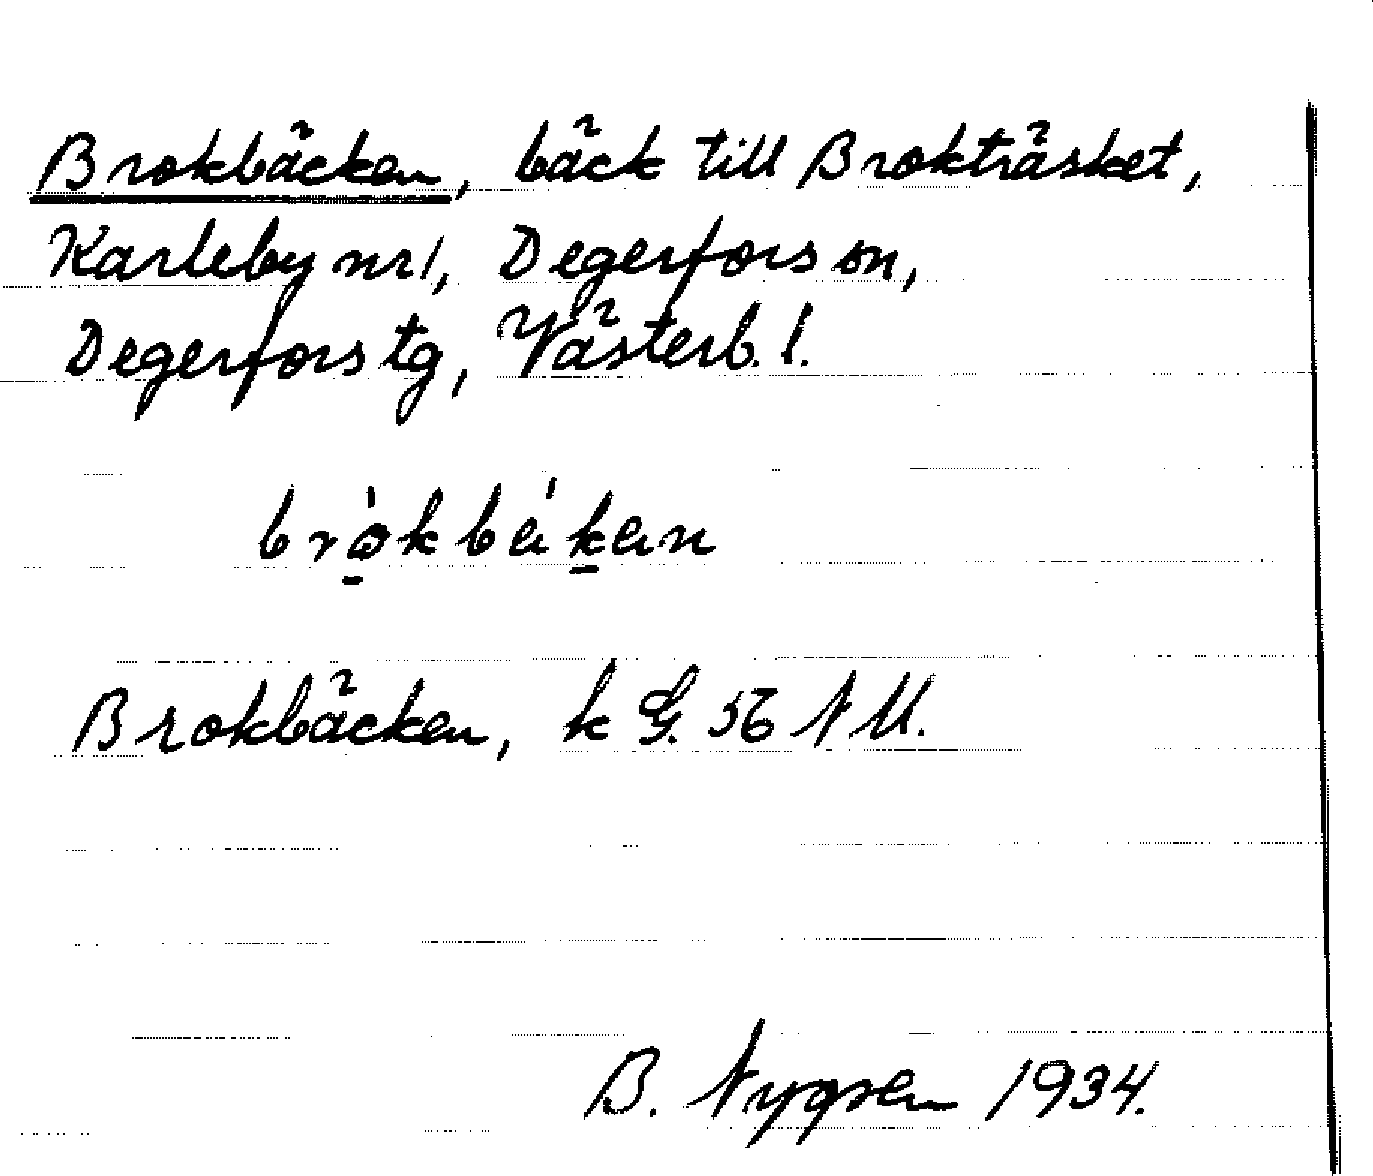 Brokbäcken, bäck till Brokträsket,
Karleby nr 1, Degerfors sn,
Degerfors tg, Västerb. l.
Brokbäcken, k G. 56 N U.
B. Nygren 1934.